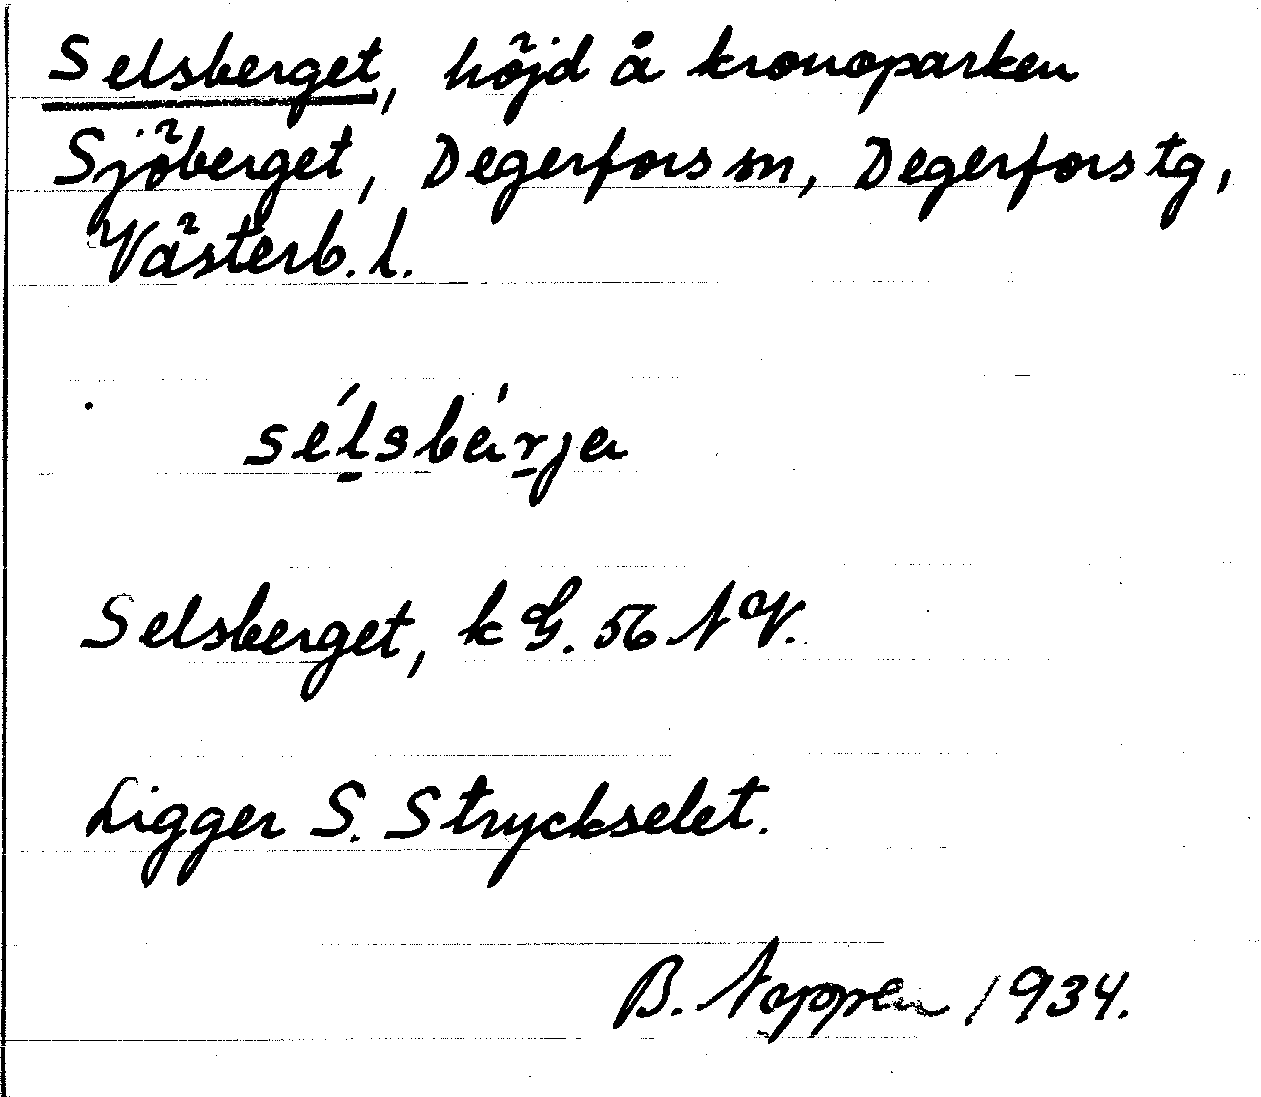 Selsberget, höjd å kronoparken
Sjöberget, Degerfors sn, Degerfors tg,
Västerb. l.
sélsbárja
Selsberget, k G. 56 NV.
Ligger S. Stryckselet.
B. 1934.